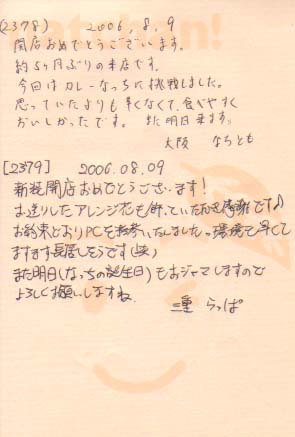 (2378) 2006.8.9
開店おめでとうございます。
約5ヶ月ぶりの来店です。
今回はカレーなっちに挑戦しました。
思っていたよりも辛くなくて、食べやすく
おいしかったです。また明日来ます。
大阪 なちとも
[2379] 2006.08.09
新装開店おめでとうございます!
お送りしたアレンジ花も飾っていただき感謝です♪
お約束どおりPCを持参いたしました。環境で早くて
ますます長居しそうです(笑)
また明日(なっちの誕生日)もおジャマしますので
よろしく願いしますね。
三重 らっぱ